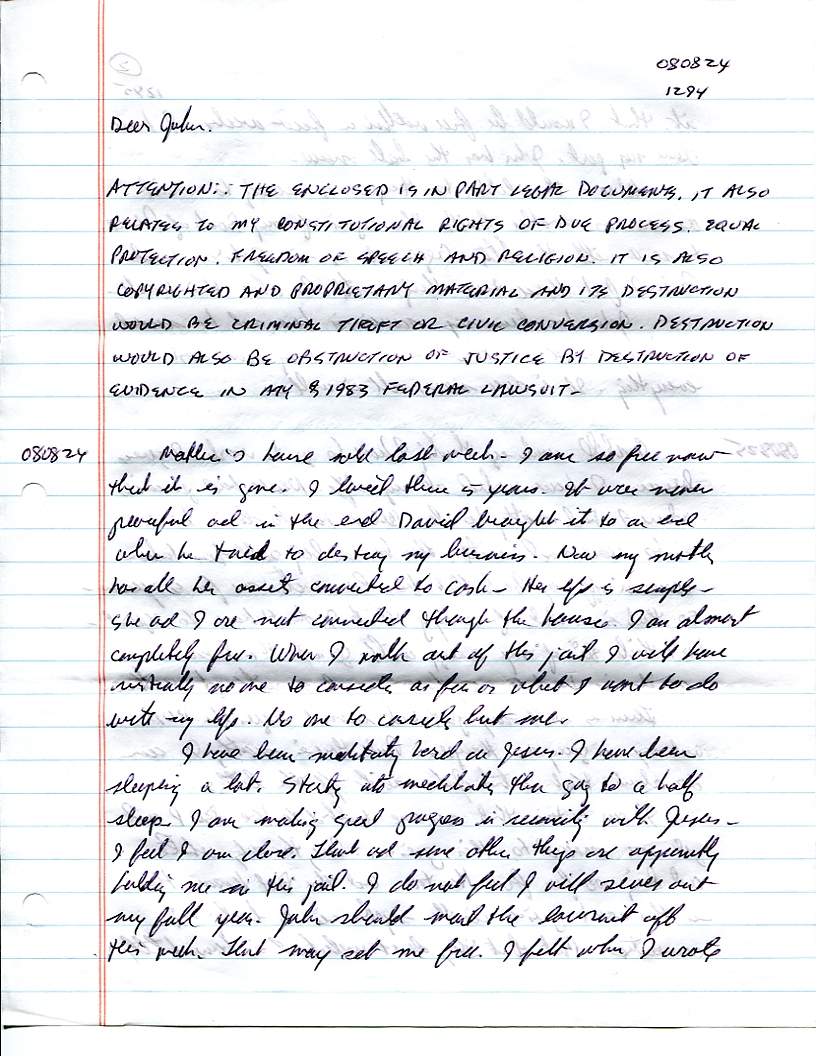 080824
1294
Dear John.
ATTENTION: THE ENCLOSED IS IN PART LEGAL DOCUMENTS. IT ALSO
RELATES TO MY CONSTITUTIONAL RIGHTS OF DUE PROCESS. EQUAL
PROTECTION. FREEDOM OF SPEECH AND RELIGION. IT IS ALSO
COPYRIGHTED AND PROPRIETARY MATERIAL AND ITS DESTRUCTION
WOULD BE CRIMINAL THEFT OR CIVIL CONVERSION. DESTRUCTION
WOULD ALSO BE OBSTRUCTION OF JUSTICE BY DESTRUCTION OF
EVIDENCE IN ATY § 1983 FEDERAL LAWSUIT-
080824 Mother's house sold last week - I am so free now
that it is gone. I lived there 5 years. It was never
peaceful ad in the end David brought it to an end
when he tried to destroy my business. Now my mother
has all her assets converted to cash - Her life is simple -
She ad I are not connected through the house. I am almost
completely free. When I walk out of this jail I will have
virtually no one to consider as far as what I want to do
with my life. No one to consider but me.
I have been meditating hard on Jesus. I have been
sleeping a lot. Starting into meditating then going to a half
sleep. I am making great progress in with Jesus -
I feel I am close. That ad some other things are apparently
holding me in this jail. I do not feel I will serve out
my full year. John should send the lawsuit off
this week. That may set me free. I felt when I wrote